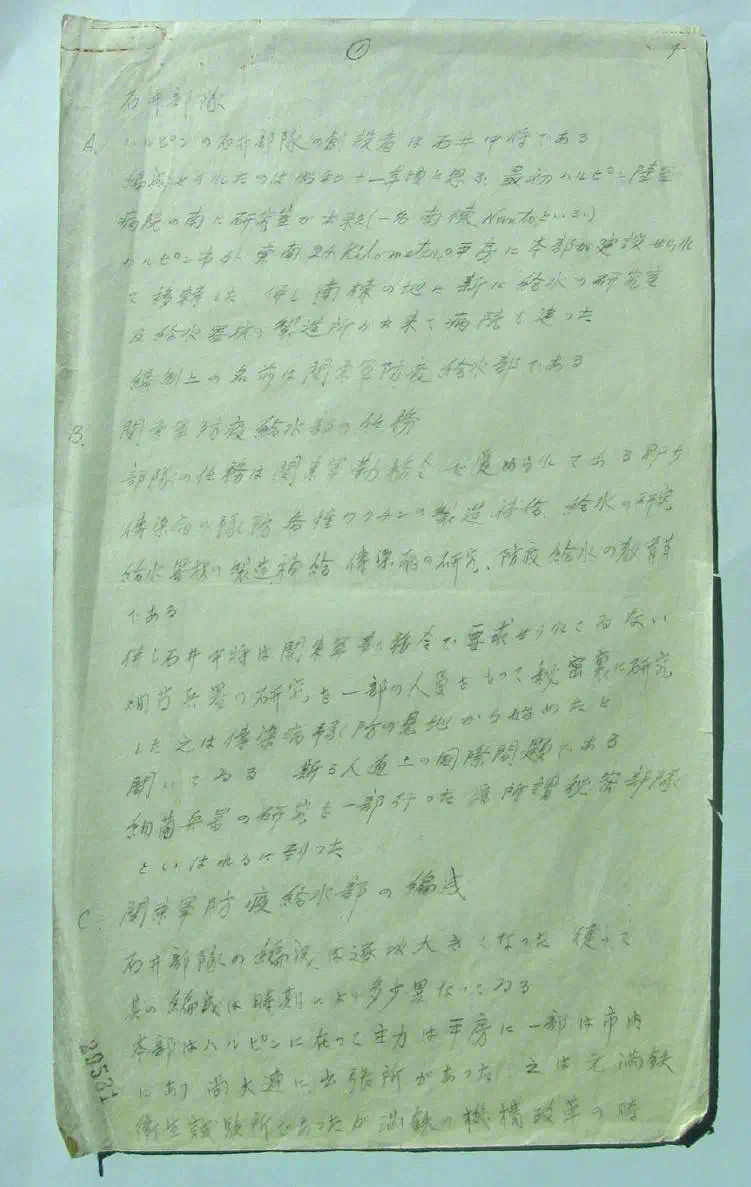 ① 1
石井部隊
A. ハルピンの石井部隊の創設者は石井中将である
編成せられたのは昭和十一年頃と想ふ 最初ハルピン陸軍
病院の南に研究室が出来た(一名南棟 といふ)
ハルピン市から東南24 Kilometerの平房に本部が建設せられ
て移転した 併し南棟の地に新に給水の研究室
及給水器材の製造所が出来て病院も建った
編制上の名前は関東軍防疫給水部である
B. 関東軍防疫給水部の任務
部隊の任務は関東軍勤務令で定められてある即ち
傳染病の予防各種ワクチンの製造補給、給水の研究
給水器材の製造補給 傳染病の研究、防疫給水の教育等
である
併し石井中将は関東軍勤務令で要求せられてゐない
細菌兵器の研究を一部の人員をもって秘密裏に研究
した 之は傳染病予防の見地から始めたと
聞いてゐる 斯る人道上の国際問題である
細菌兵器の研究を一部行った為所謂秘密部隊
といはれるに到った
C. 関東軍防疫給水部の編成
石井部隊の編成は逐次大きくなった 従って
其の編成は時期により多少異なってゐる
本部はハルピンに在って主力は平房に一部は市内
にあり 尚大連に出張所があった 之は元満鉄
衛生試験所であったが満鉄の機構改革の時
29521